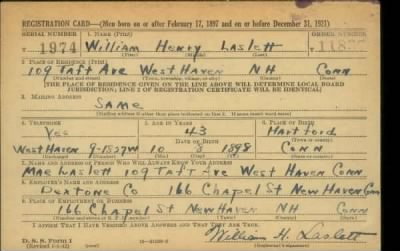 REGISTRATION CARD—(Men born on or after February 17, 1897 and on or before December 31, 1921)
SERIAL NUMBER 1. NAME (Print) ORDER NUMBER
T 1974 William Henry Laslett
2. PLACE OF RESIDENCE (Print)
109 Taft Ave West Haven NH Conn
(Number and street) (Town, township, village, or city) (County) (State)
[THE PLACE OF RESIDENCE GIVEN ON THE LINE ABOVE WILL DETERMINE LOCAL BOARD
JURISDICTION; LINE 2 OF REGISTRATION CERTIFICATE WILL BE IDENTICAL]
3. MAILING ADDRESS
Same
[Mailing address if other than place indicated on line 2. If same, insert word same]
4. TELEPHONE 5. AGE IN YEARS 6. PLACE OF BIRTH
Yes 43 Hartford
DATE OF BIRTH (Town or county)
West Haven 9-1827W 10 8 1898 Conn
(Exchange) (Number) (Mo.) (Day) (Yr.) (State or country)
7. NAME AND ADDRESS OF PERSON WHO WILL ALWAYS KNOW YOUR ADDRESS
Mae Laslett 109 Taft Ave West Haven Conn
8. EMPLOYER'S NAME AND ADDRESS
Dextone Co 166 Chapel St New Haven Conn
9. PLACE OF EMPLOYMENT OR BUSINESS
166 Chapel St New Haven NH Conn
(Number and street or R. F. D. number) (Town) (County) (State)
I AFFIRM THAT I HAVE VERIFIED ABOVE ANSWERS AND THAT THEY ARE TRUE.
D. S. S. Form 1
William H. Laslett